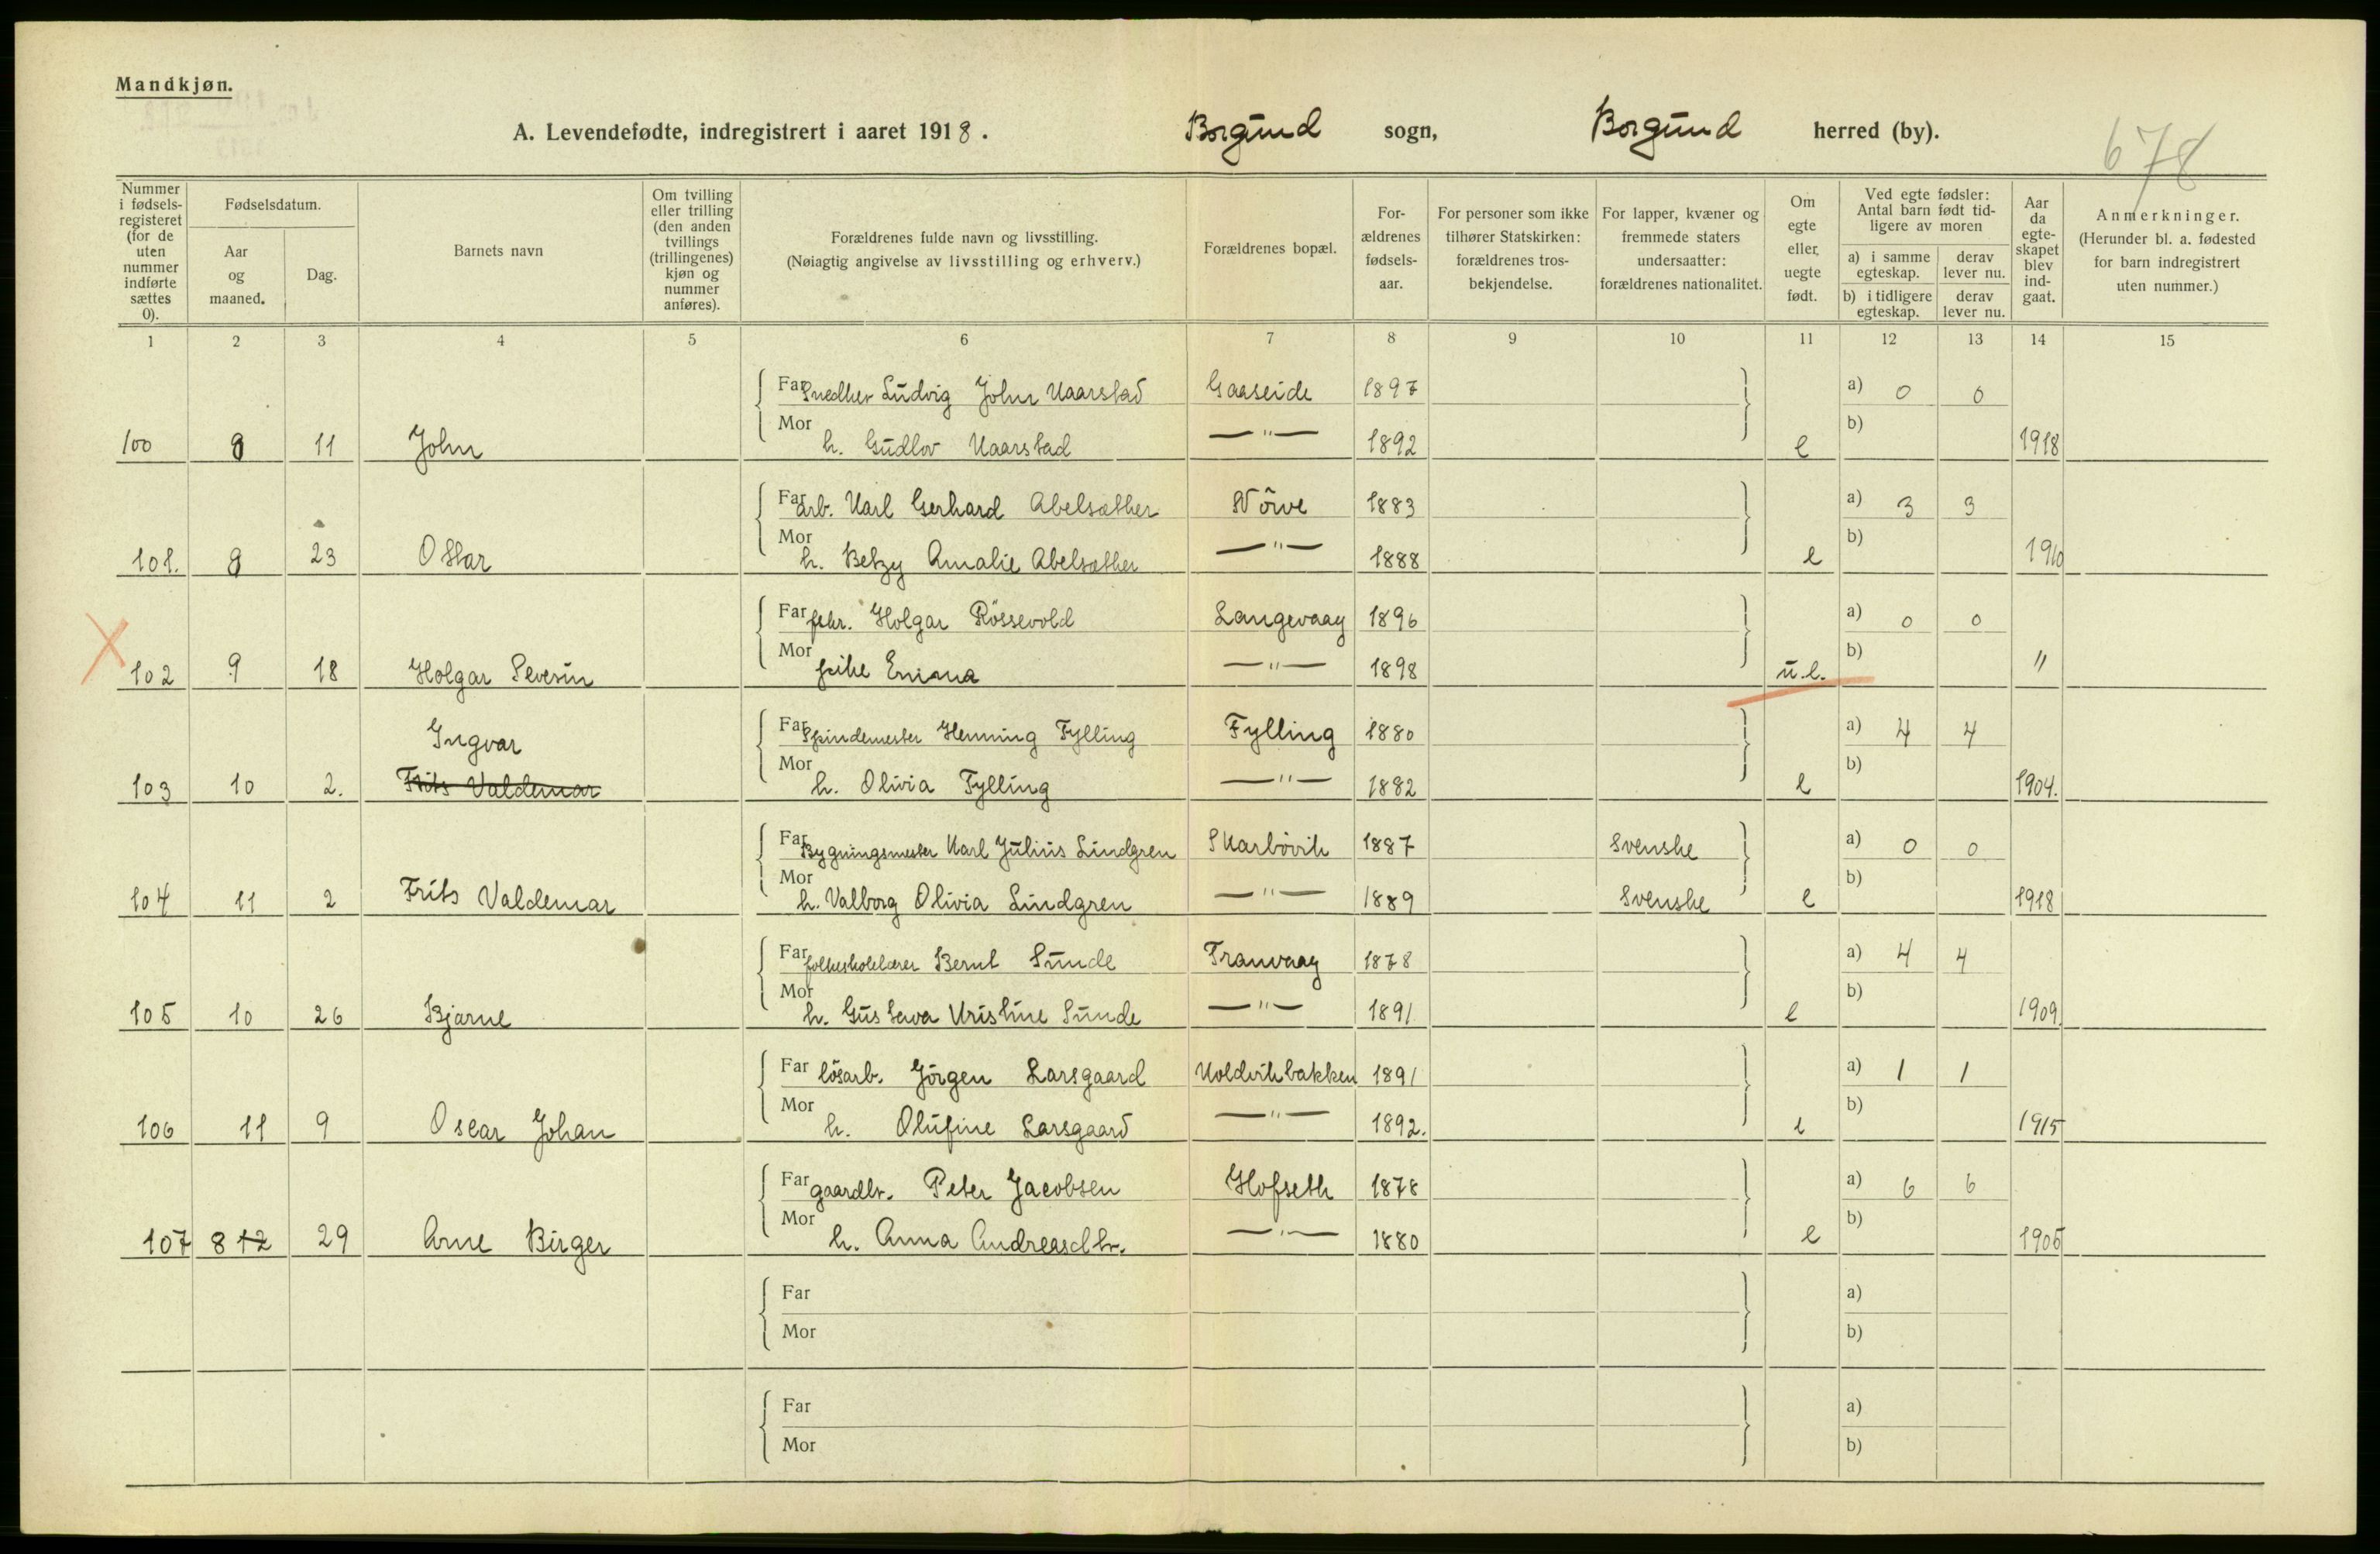 Mandkjøn.
A. Levendefødte, indregistrert i aaret 1918. Borgund sogn, Borgund herred (by).
678
Nummer i fødsels-registeret (for de uten nummer indførte sættes 0).
Fødselsdatum.
Aar og maaned.
Dag.
Barnets navn
Om tvilling eller trilling (den anden tvillings (trillingenes) kjøn og nummer anføres).
Forældrenes fulde navn og livsstilling.
(Nøiagtig angivelse av livsstilling og erhverv.)
Forældrenes bopæl.
For-ældrenes fødsels-aar.
For personer som ikke tilhører Statskirken: forældrenes tros-bekjendelse.
For lapper, kvæner og fremmede staters undersaatter: forældrenes nationalitet.
Om egte eller, uegte født.
Ved egte fødsler: Antal barn født tid-ligere av moren
a) i samme egteskap. derav lever nu.
b) i tidligere egteskap. derav lever nu.
Aar da egte-skapet blev ind-gaat.
Anmerkninger.
(Herunder bl. a. fødested for barn indregistrert uten nummer.)
1 2 3 4 5 6 7 8 9 10 11 12 13 14 15
Far Snedker Ludvig John Kaarstad Gaaseide 1897 a) 0 0
Mor h. Gudlov Kaarstad —"— 1892 b)
100 9 11 John e 1918
Far arb. Karl Gerhard Abelsæther Nörve 1883 a) 3 3
Mor h. Betzy Amalie Abelsæther —"— 1888 b)
101. 9 23 Ottar e 1910
X
Far fskr. Holgar Rössevold Langevaag 1896 a) 0 0
Mor pike Emma —"— 1898 b)
102 9 18 Holgar Severin u.e. "
Far Spindemester Henning Fylling Fylling 1880 a) 4 4
Mor h. Olivia Fylling —"— 1882 b)
Ingvar
103 10 2. Frits Valdemar e 1904.
Far Bygningsmester Karl Julius Lindgren Skarbövik 1887 Svenske a) 0 0
Mor h. Valborg Olivia Lindgren —"— 1889 Svenske b)
104 11 2 Frits Valdemar e 1918
Far folkeskolelærer Bernt Sunde Tranvaag 1878 a) 4 4
Mor h. Gustava Kristine Sunde —"— 1891 b)
105 10 26 Bjarne e 1909.
Far lösarb. Jörgen Larsgaard Koldvikbakken 1891 a) 1 1
Mor h. Olufine Larsgaard —"— 1892. b)
106 11 9 Oscar Johan e 1915
Far gaardbr. Peter Jacobsen Hofseth 1878 a) 6 6
Mor h. Anna Andreasdtr. —"— 1880 b)
107 8 12 29 Arne Birger e 1905
Far a)
Mor b)
Far a)
Mor b)